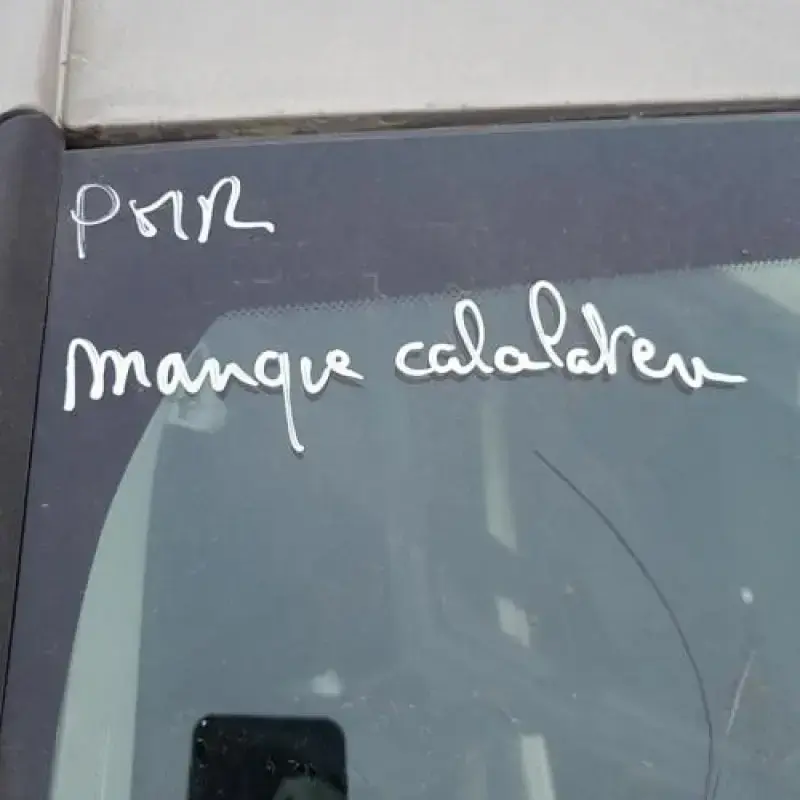 PMR
manque calalateu